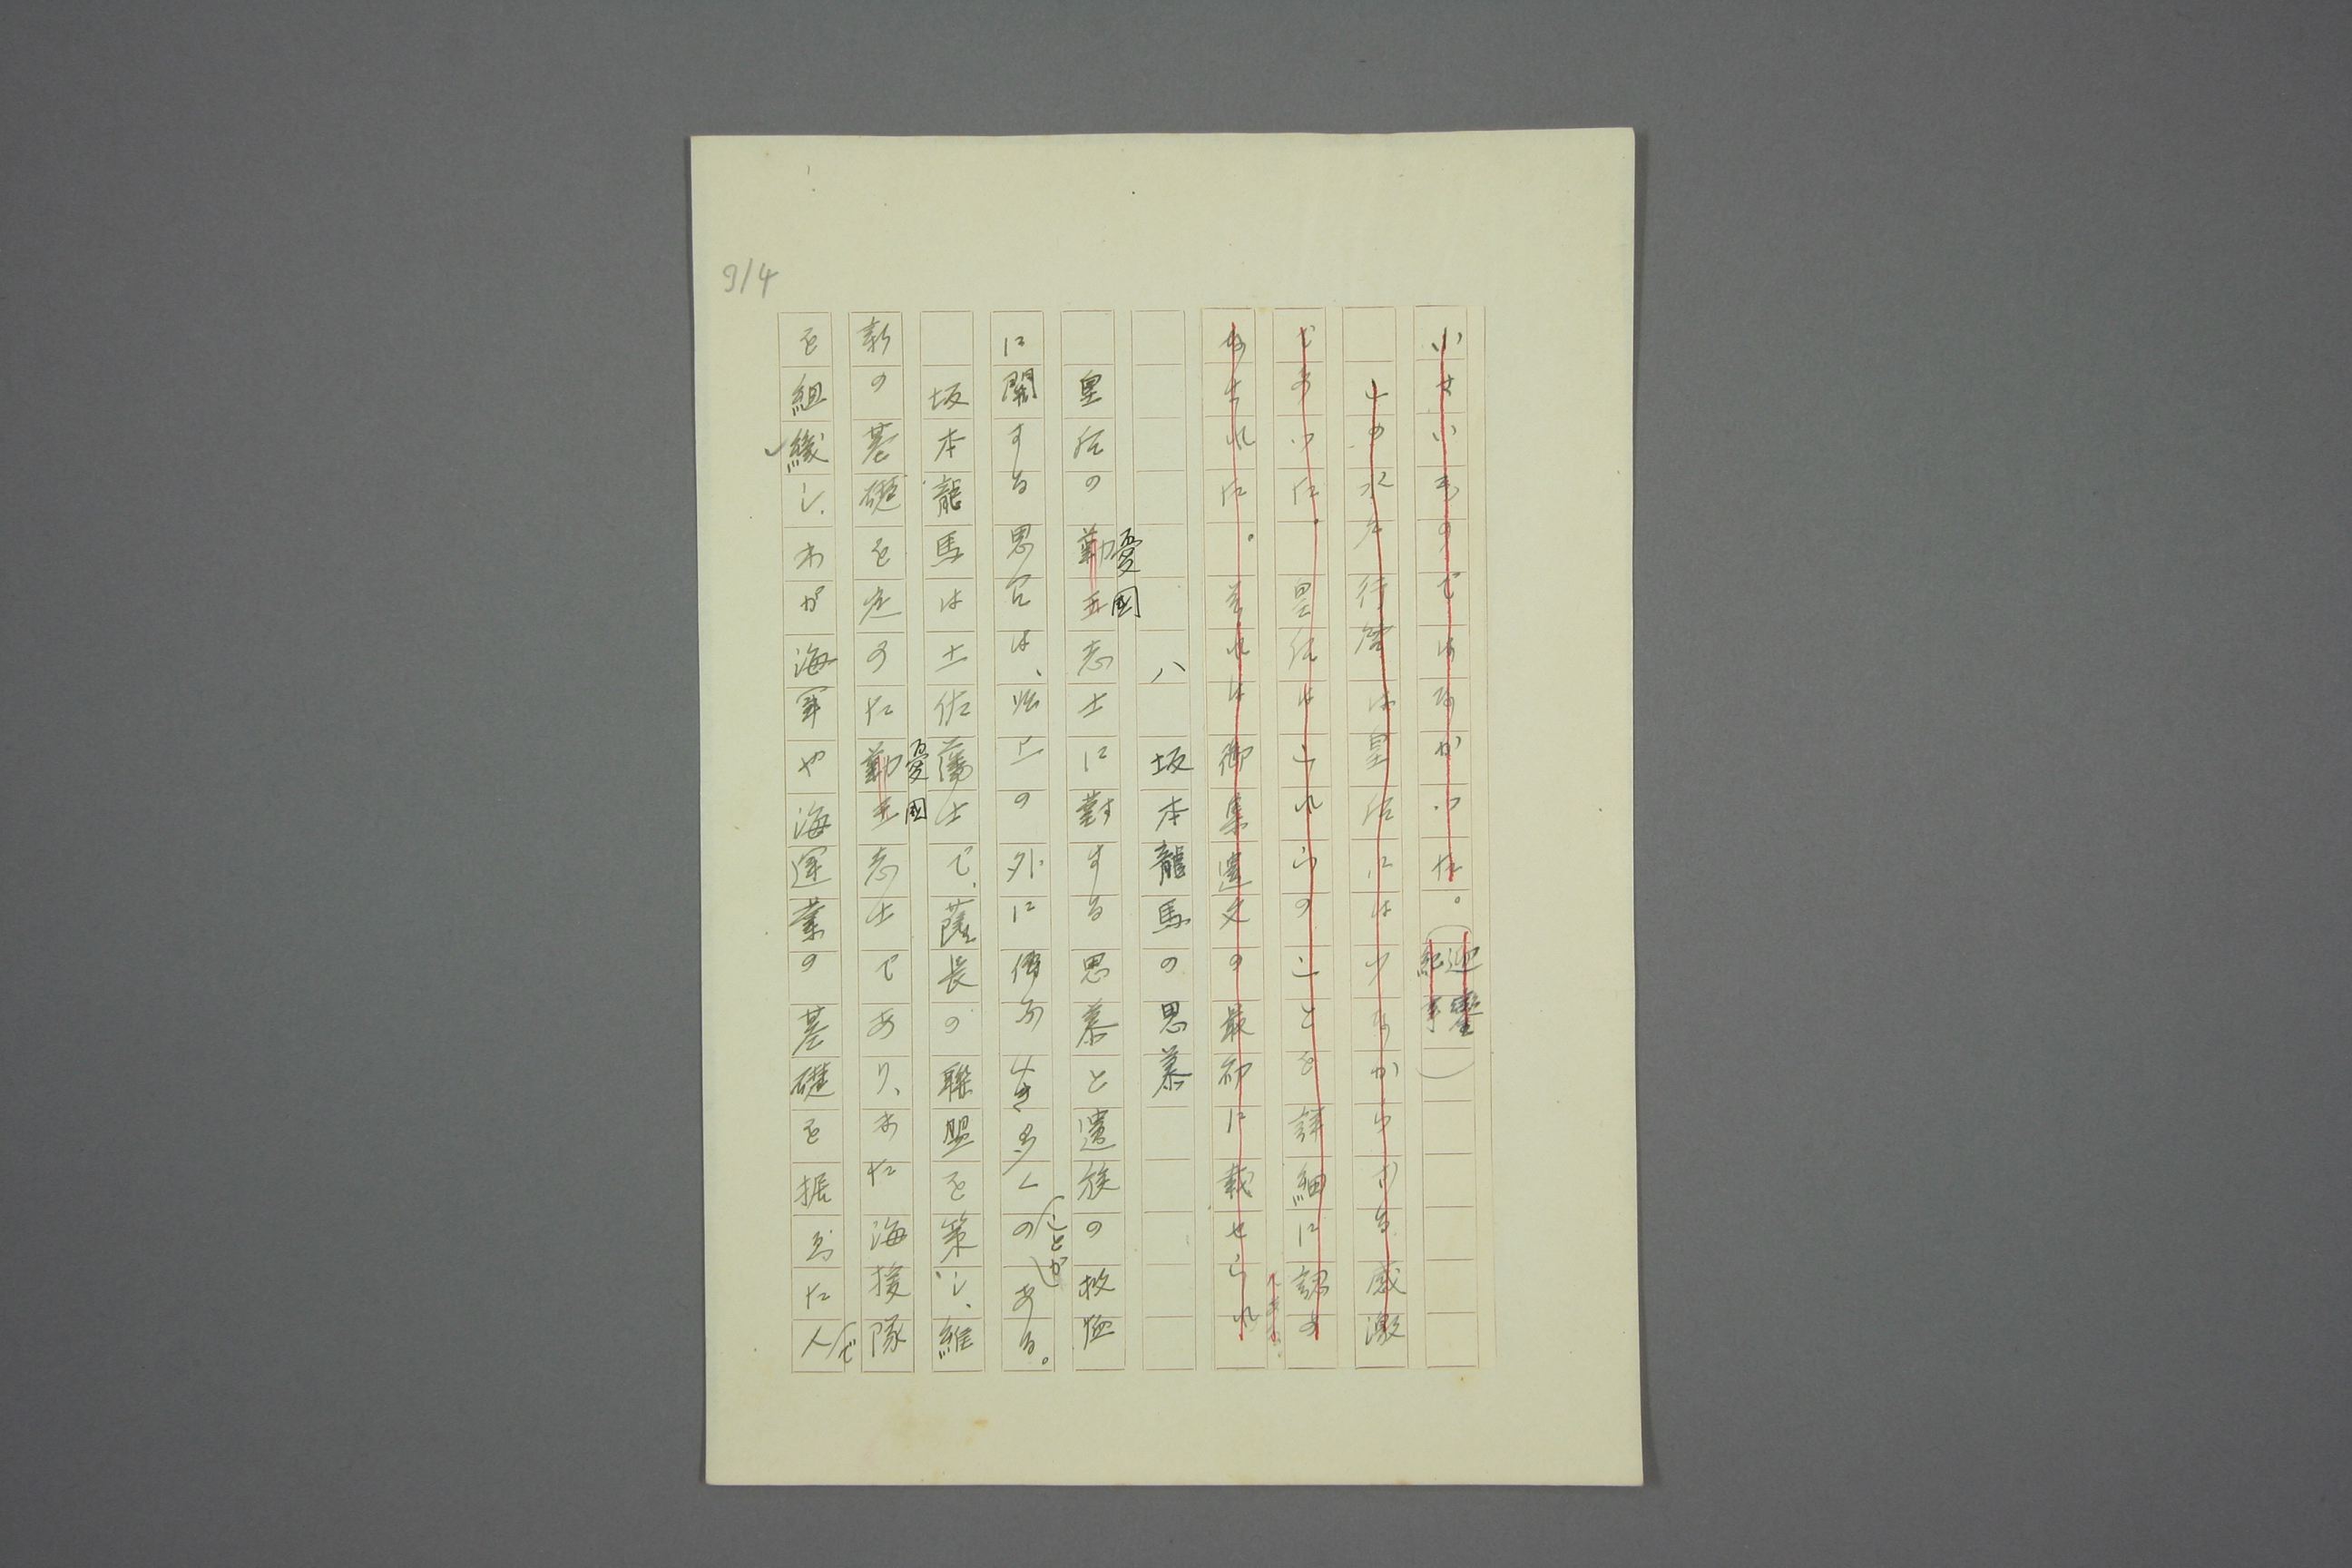 いせいものではなかつた。(迎鑾紀事)
この水夫行啓は皇后にはいりなからずる感激
であつた。皇后はこれらのことを詳細に認め
なされた。それは御集遺文の最初に載せられ
てある。
八 坂本龍馬の思慕
皇后の勤王志士に對する思慕と遺族の救恤
憂国
に関する思召は、以上の外に傳ふべき多くのある。
(ことが)
坂本龍馬は土佐藩士で、薩長の聯盟を策し、維
新の基礎を定めた勤王志士であり、また海援隊
憂国
を組織し、わが海軍や海運業の基礎を据ゑた人で
9/4